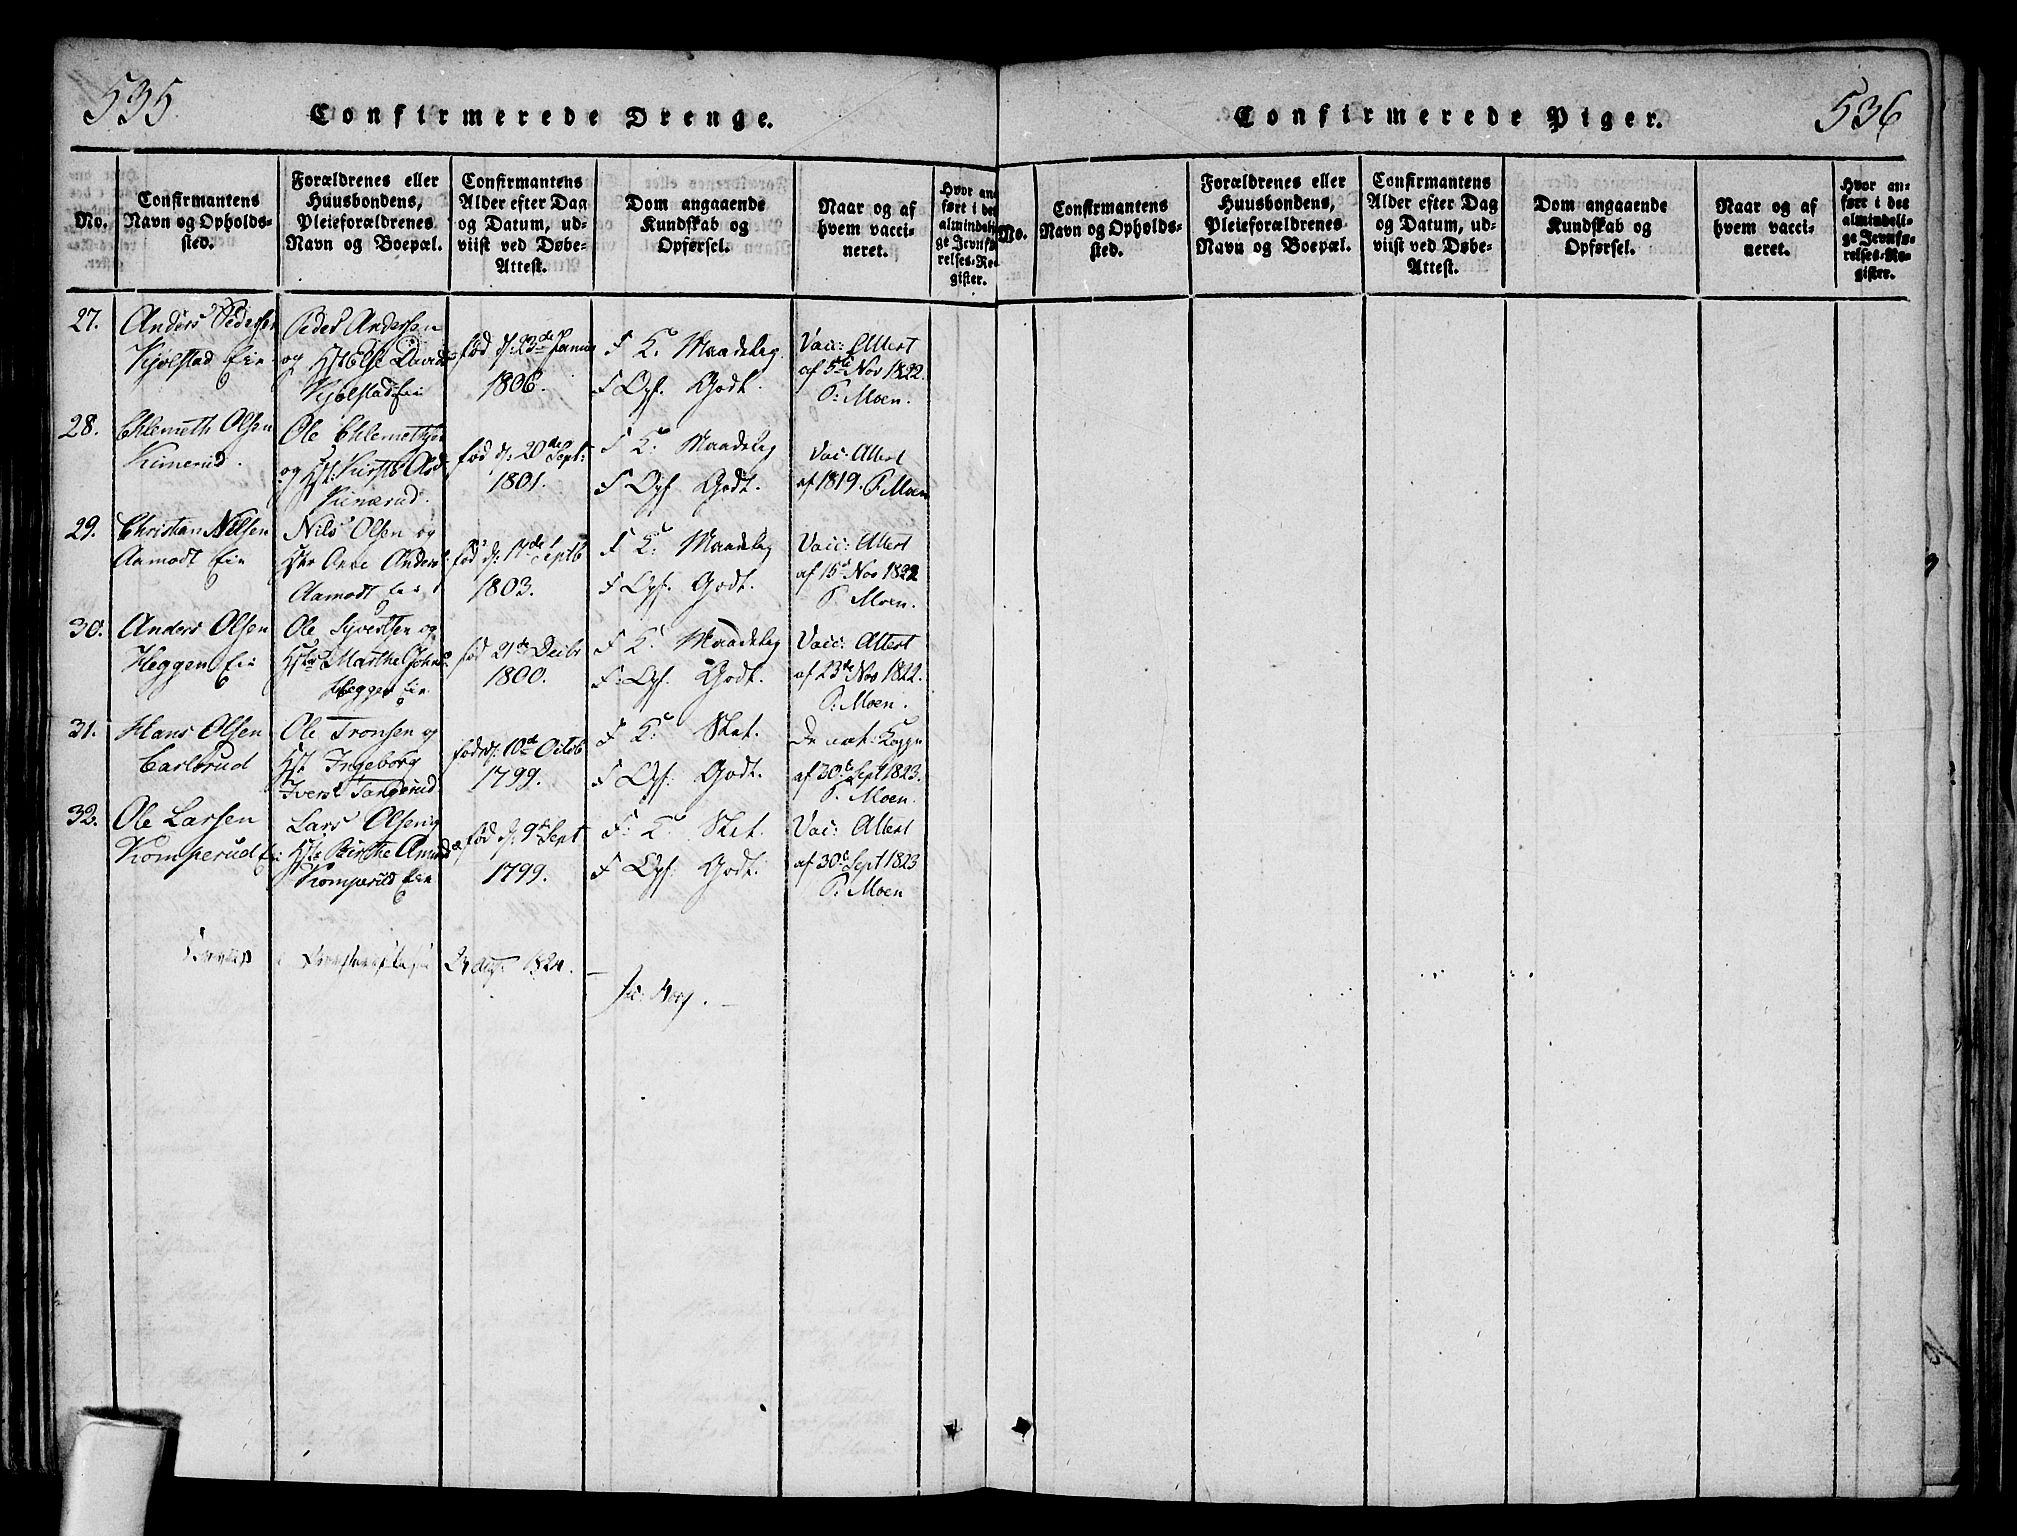 535
Confirmerede Drenge.
No.
Confirmantens
Navn og Opholds-
sted.
Forældrenes eller
Huusbondens,
Pleieforældrenes
Navn og Boepæl.
Confirmantens
Alder efter Dag
og Datum, ud-
viist ved Døbe-
Attest.
Dom angaaende
Kundskab og
Opførsel.
Naar og af
hvem vacci-
neret.
Hvor an-
ført i det
almindeli-
ge Jevnfø-
relses-Re-
gister.
27.
Anders Pedersen
Kjølstad Eie
Peder Andersen
og Else Davids
Kjølstad Eie
fød d: 23de Januar
1806.
F K. Maadelig
F Opf. Godt.
Vac: Attest
af 5te Nov 1822.
P. Moen.
28.
Chlemeth Olsen
Kinerud.
Ole Chlemethsen
og
Kinerud.
fød d: 20de Sept:
1801.
F K. Maadelig
F Opf Godt.
Vac: Attest
af 1819. P. Moen
29.
Christian Nilsen
Aamodt Eie
Nils Olsen og
Anne Anders
Aamodt Eie
fød d: Septb
1803.
F K: Maadelig
F Opf. Godt.
Vacc: Attest
af 15de Nov 1822
P. Moen.
30.
Anders Olsen
Heggen Eie
Ole Syvertsen og
Marthe Johns
Heggen Eie
fød 21de Decbr
1800.
F K. Maadelig
F. Opf. Godt.
Vacc: Attest
af 23de Nov 1822.
P. Moen.
31.
Hans Olsen
Carlsrud
Ole Tronsen og
Ingeborg
Iversd Tangerud
fød d: 10de Octob
1799.
F K. Slet.
F Opf: Godt.
De nat: Kopper
af 30te Sept 1823.
P. Moen.
32.
Ole Larsen
Komperud Eie
Lars Olsen og
Birthe Amund
Komperud Eie
fød d: 9de Sept
1799.
F. K. Slet.
F Opf: Godt.
Vac: Attest
af 30te Sept 1823
P. Moen
1824.
536
Confirmerede Piger.
No.
Confirmantens
Navn og Opholds-
sted.
Forældrenes eller
Huusbondens,
Pleieforældrenes
Navn og Boepæl.
Confirmantens
Alder efter Dag
og Datum, ud-
viist ved Døbe-
Attest.
Dom angaaende
Kundskab og
Opførsel.
Naar og af
hvem vacci-
neret.
Hvor an-
ført i det
almindeli-
ge Jevnfø-
relses-Re-
gister.